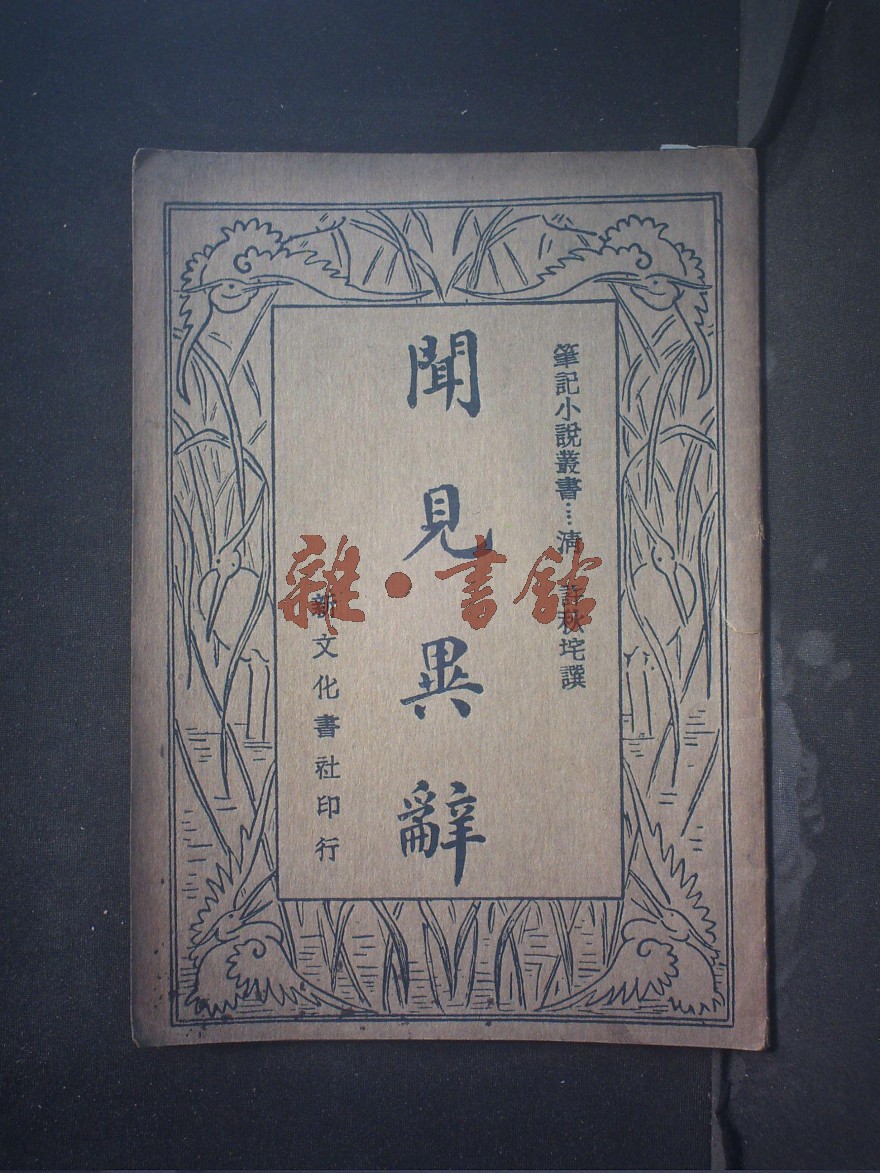 筆記小說叢書…清 許秋垞撰
聞見異辭
新文化書社印行
雜·書館